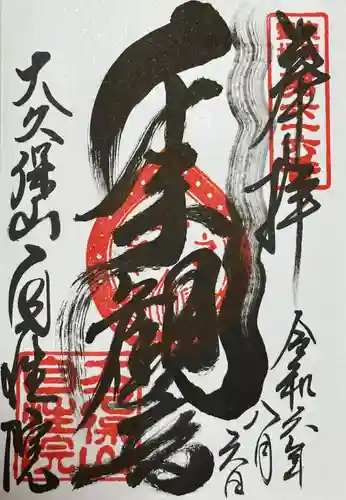 奉拝
令和六年
八月
六日
千手観音
大久保山 自性院
大久保山
自性院